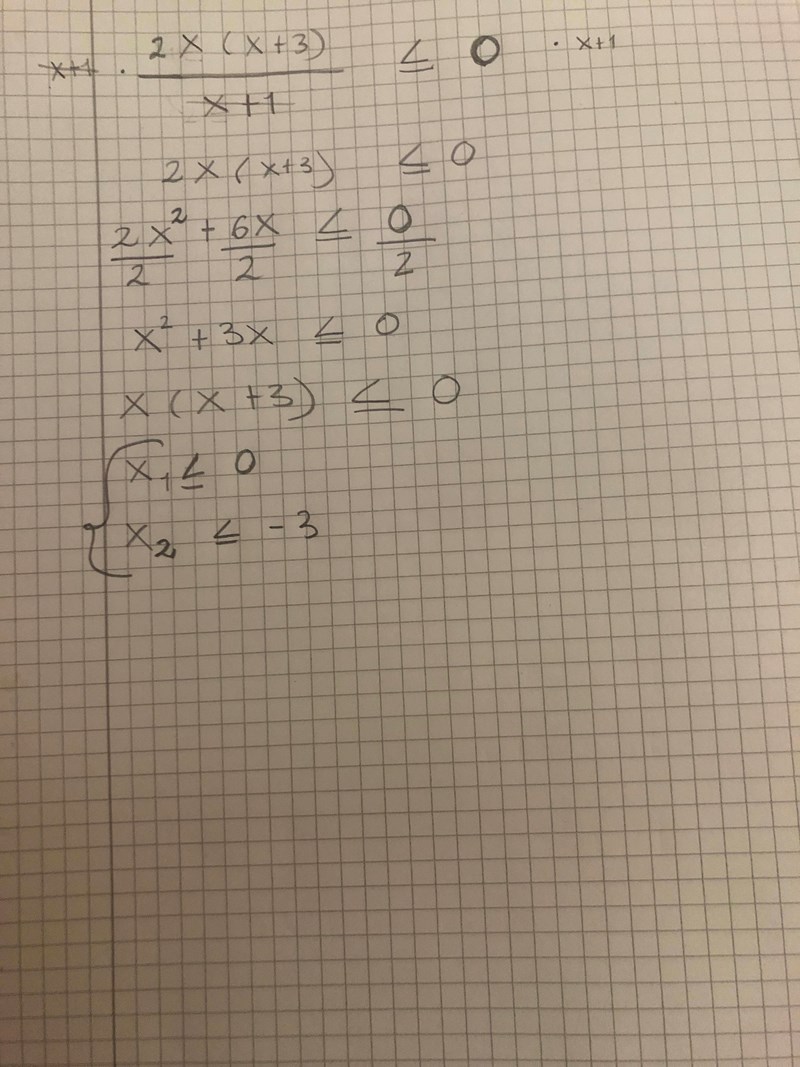 x+1 · 2x (x+3) / x+1 ≤ 0 · x+1
2x (x+3) ≤ 0
2x² / 2 + 6x / 2 ≤ 0 / 2
x² + 3x ≤ 0
x (x +3) ≤ 0
{ x₁ ≤ 0
x₂ ≤ -3